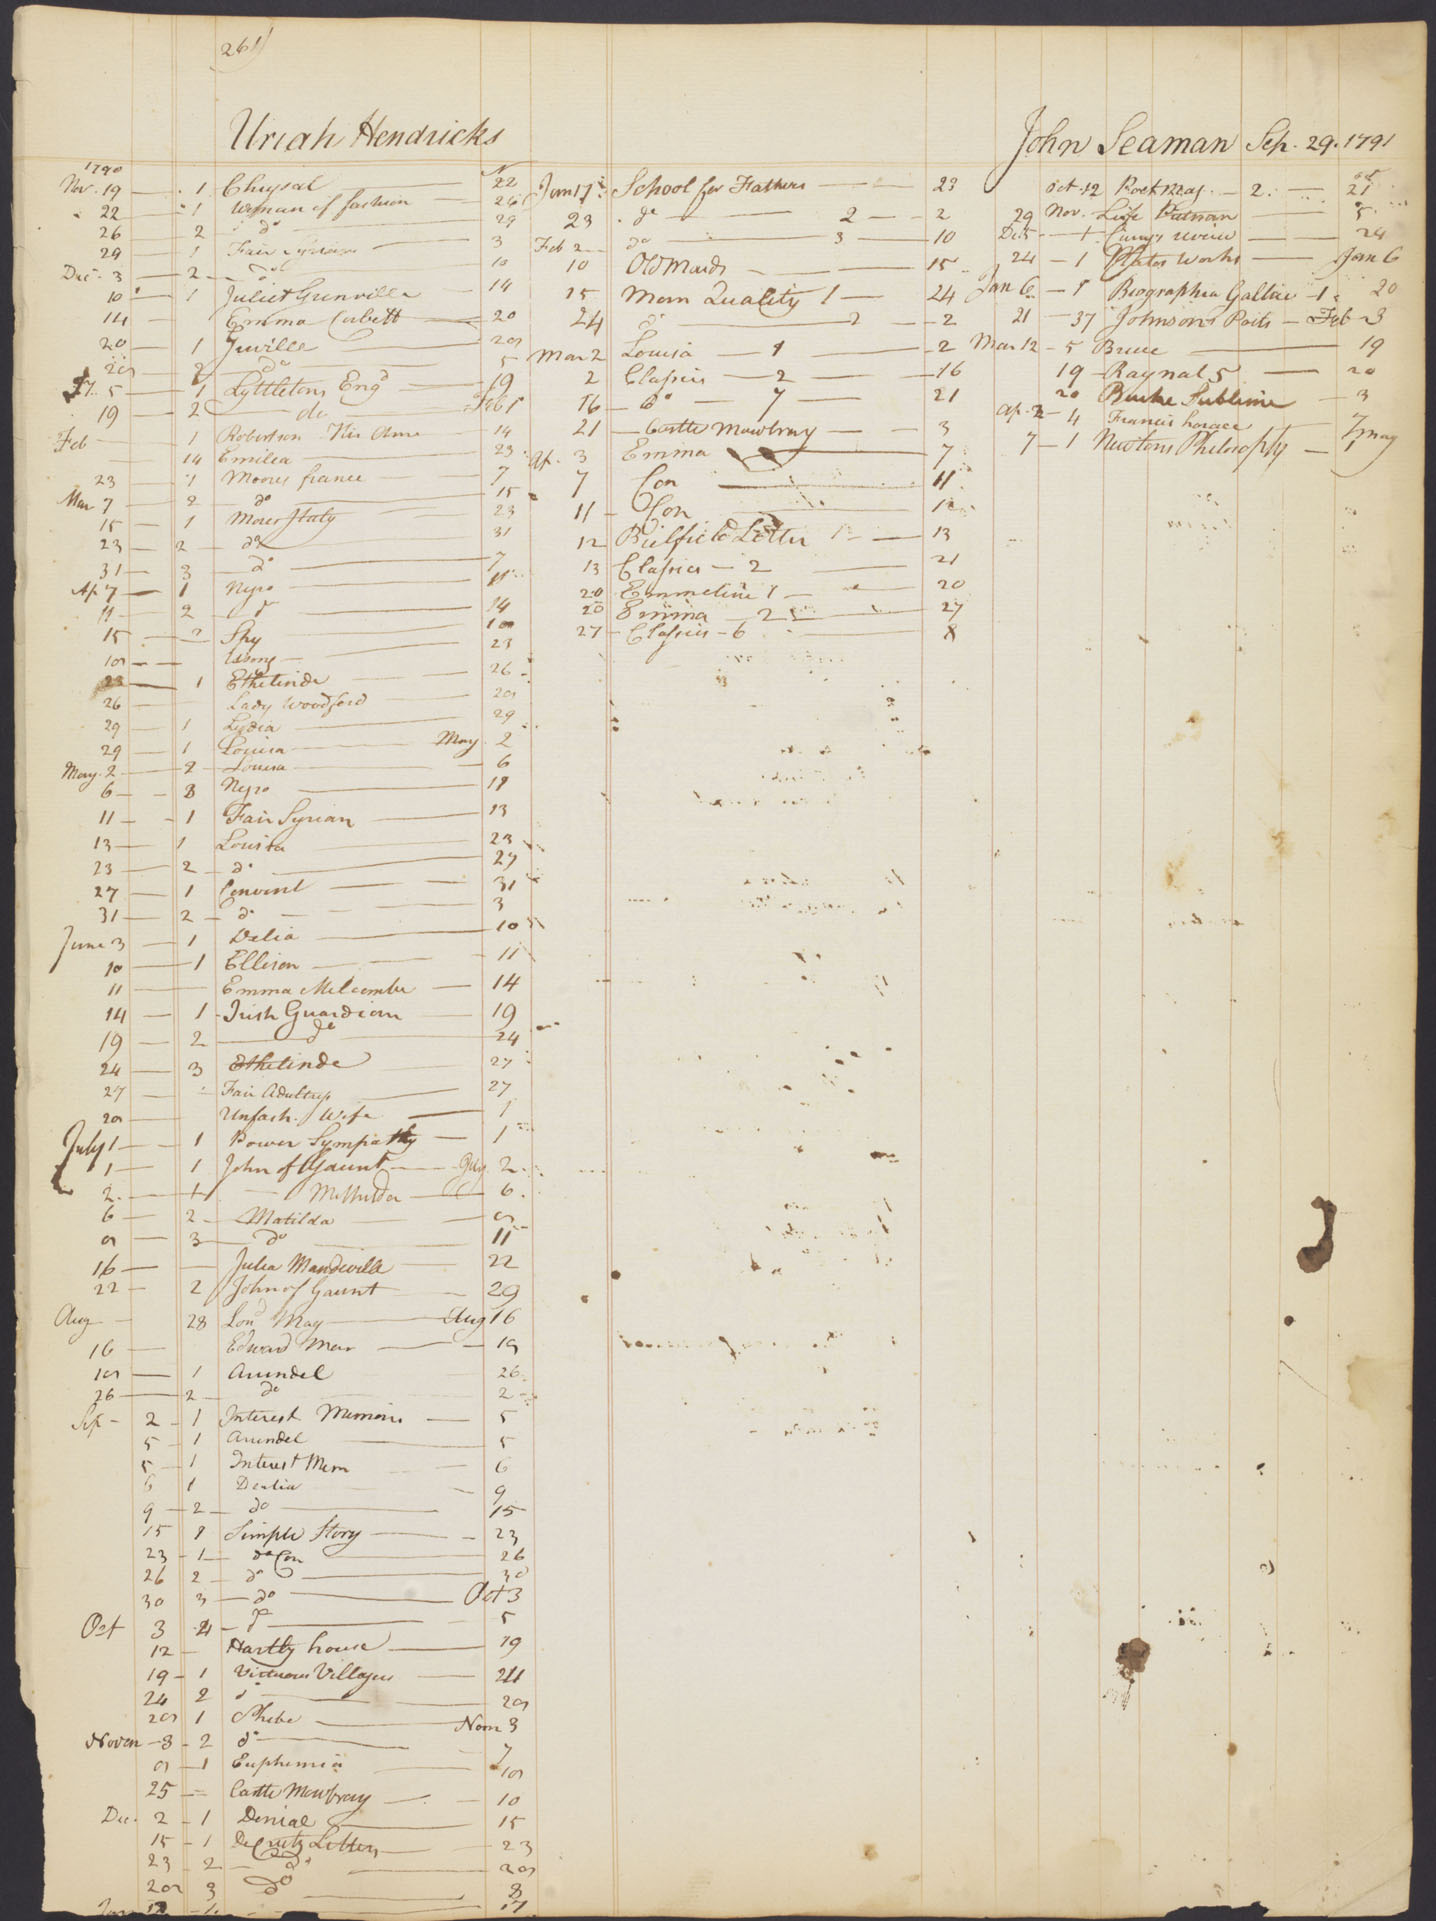 261
Uriah Hendricks
1790
Nov. 19 — 1 Chrysal — 22
22 — 1 Woman of fashion — 26
26 — 2 — do — 29
29 — 1 Fair Syrian — 3
Dec. 3 — 2 — do — 10
10 — 1 Juliet Grenville — 14
14 — Emma Corbett — 20
20 — 1
2 — do — 5
5 — 1 Lyttletons Engd — 19
19 — 2 — do — Feb 1
Feb — 1 Robertson His Ame — 14
14 Emilia — 23
23 — 1 Moores france — 7
Mar 7 — 2 — do — 15
15 — 1 Mores Italy — 23
23 — 2 — do — 31
31 — 3 — do — 7
Ap 7 — 1 — 11
11 — 2 — do — 14
15 — 2 Spy
— 23
23 — 1 Ethelinde — 26
26 — Lady Woodford
29 — 1 Lydia — 29
29 — 1 Louisa — May 2
May 2 — 2 Louisa — 6
6 — 3
11 — 1 Fair Syrian — 13
13 — 1 Louisa — 23
23 — 2 — do — 27
27 — 1 Convent — 31
31 — 2 — do — 3
June 3 — 1 Delia — 10
10 — 1 Ellison — 11
11 — Emma Melcombe — 14
14 — 1 Irish Guardian — 19
19 — 2 — do — 24
24 — 3 Ethelinde — 27
27 — Fair Adultress — 27
Unfash. Wife — 1
July 1 — 1 Power Sympathy — 1
1 — 1 John of Gaunt — July 2
2 — 1 — 6
6 — 2 — Matilda
3 — do — 11
16 — Julia Mandeville — 22
22 — 2 John of Gaunt — 29
Aug — 28 Lond Mag — Aug 16
16 — Edward
1 Arundel — 26
26 — 2 — do — 2
Sep — 2 — 1 Interest Memoirs — 5
5 — 1 Arundel — 5
5 — 1 Interest Mem — 6
6 1 — 9
9 — 2 — do — 15
15 Simple Story — 23
23 — 1 — do Con — 26
26 2 — do — 30
30 3 — do — Oct 3
Oct 3 4 — do — 5
12 — Hartly house — 19
19 — 1 Virtuous Villagers — 24
24 2 do
1 Phebe — Nom 3
Novem — 3 — 2 do — 7
1 Euphemia
25 — Castle Mowbray — 10
Dec. 2 — 1 Denial — 15
15 — 1 Letters — 23
23 — 2 — do
3 do — 3
Jan
Jan 17 School for Fathers — 23
23 do — 2 — 2
Feb 2 — do — 3 — 10
10 Old Maids — 15
15 Mem Quality 1 — 24
24 do — 2 — 2
Mar 2 Louisa — 1 — 2
2 Classics — 2 — 16
16 — do — 7 — 21
21 — Castle Mowbray — 3
Ap. 3 Emma — 7
7 Con — 11
11 — Con
12 Bielfield Letter — 13
13 Classics — 2 — 21
20 Emmeline 1 — 20
20 Emma — 2 — 27
27 — Classics — 6 — 8
John Seaman Sep. 29. 1791
Oct. 12 — 2 — 21
29 Nov. Life Putnam — 5
Dec 5 — 1 review — 24
24 — 1 Platos Works — Jan 6
Jan 6 — 1 Biographia Gallica — 1 20
21 — 37 Johnsons Poets — Feb 3
Mar 12 — 5 Bruce — 19
19 — Raynal 5 — 20
20 Burke Sublime — 3
Ap. 2 — 4 Francis horace — 7
7 — 1 Newtons Philosophy — 1 May